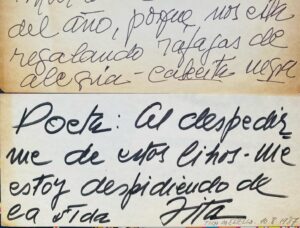 del año, porque nos esta
regalando ráfagas de
alegria - cabecita negra
Poeta: Al despedir
me de estos libros - Me
estoy despidiendo de
la vida Tita
TITA MERELLO. 10.8.1987